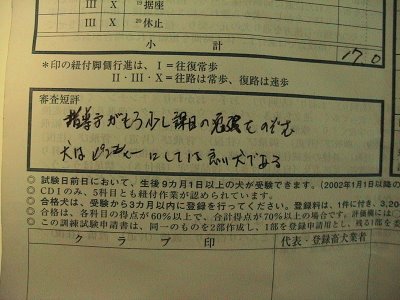 III X ⑲据座
III X ⑳休止
小計 17.0
*印の紐付脚側行進は、I=往復常歩
II・III・X=往路は常歩、復路は速歩
審査短評
指導手がもう少し課目の
犬は としては良い犬である
◎ 試験日前日において、生後9カ月1日以上の犬が受験できます。(2002年1月1日以降の
◎ CDIのみ、5科目とも紐付作業が認められています。
◎ 合格犬は、受験から3カ月以内に登録を行ってください。登録料は、1件に付き、3,20
◎ 合格は、各科目の得点が60%以上で、合計得点が70%以上の場合です。評価欄には
◎ この訓練試験申請書は、同一のものを2部作成し、1部を登録申請用とし、残る1部を委
クラブ印 代表・登録畜犬業者